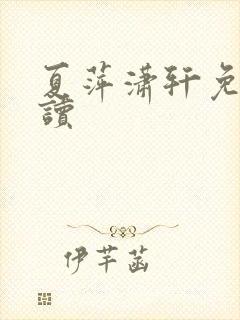 夏萍潇轩免
讀
伊芊菡